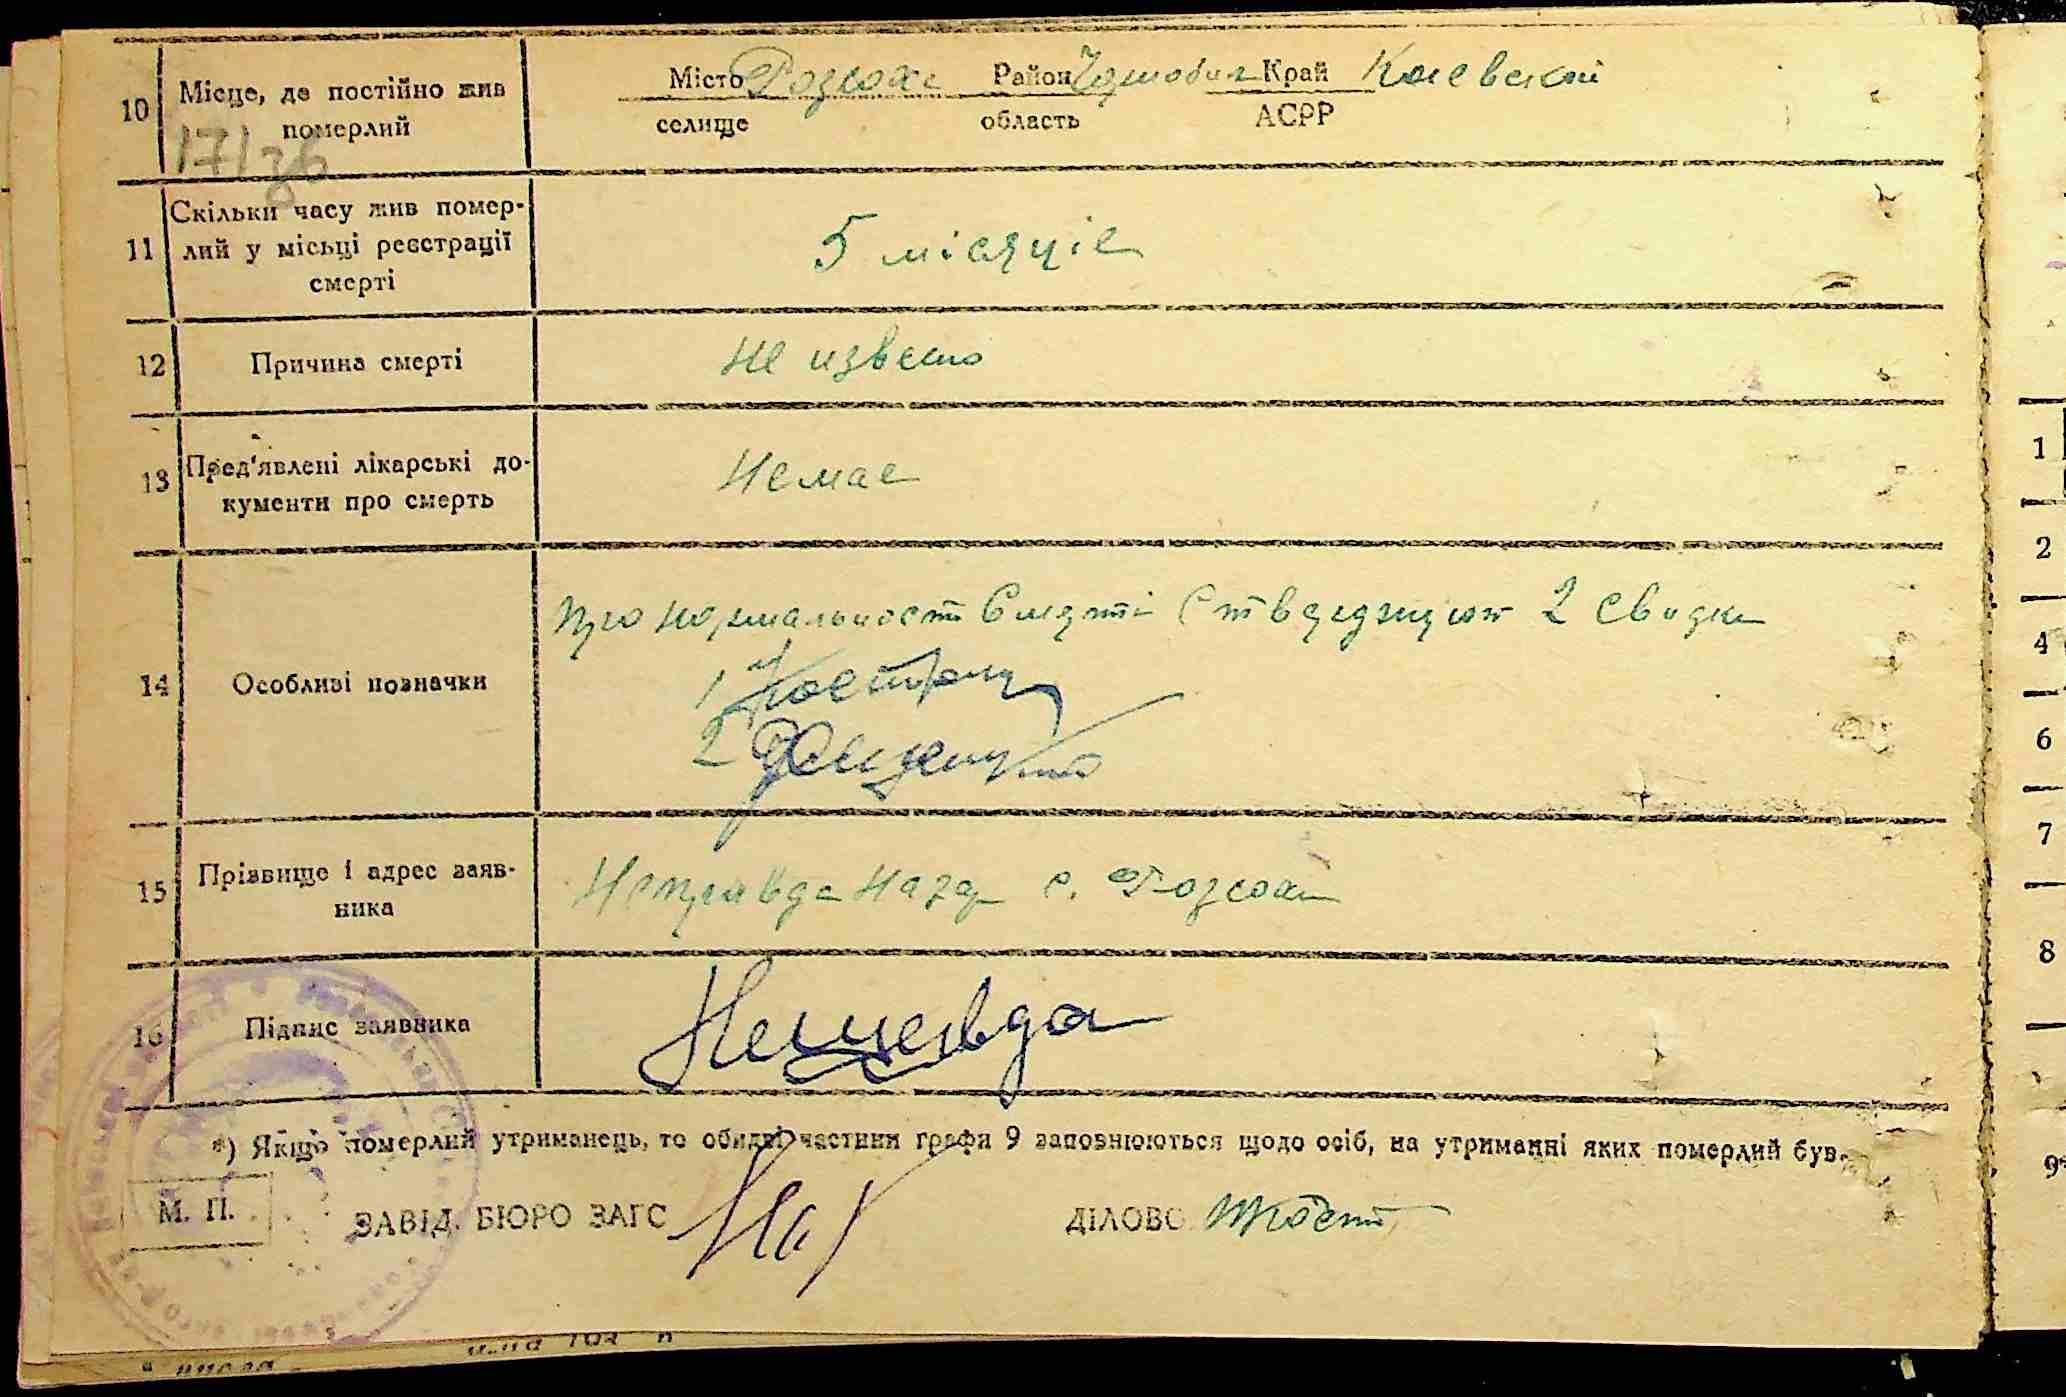 10 Місце, де постійно жив померлий
Місто Розсохе Район Чорнобил Край Киевский
селище область АСРР
11 Скільки часу жив помер-
лий у місьці реєстрації
смерті
5 місяців
12 Причина смерті
Не извесно
13 Пред'явлені лікарські до-
кументи про смерть
Немае
14 Особливі позначки
Про нормальност Смерті Стверджуют 2 Свидки
1
2
15 Прізвище і адрес заяв-
ника
Неправда Назар с. Розсохи
16 Підпис заявника
*) Якщо померлий утриманець, то обидві частини графи 9 заповнюються щодо осіб, на утриманні яких померлий був.
М. П.
ЗАВІД. БЮРО ЗАГС
ДІЛОВО
1
2
4
6
7
8
9*